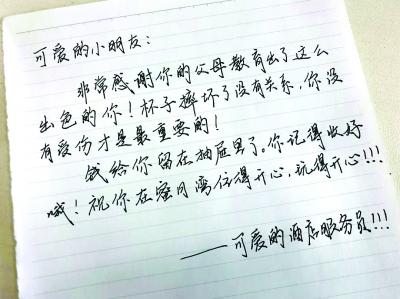 可爱的小朋友:
非常感谢你的父母教育出了这么
出色的你!杯子摔坏了没有关系,你没
有受伤才是最重要的!
钱给你留在抽屉里了。你记得收好
哦!祝你在蜜月湾住得开心,玩得开心!!!
——可爱的酒店服务员!!!